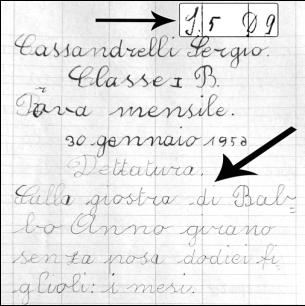 I. 5 D 9
Cassandrelli Sergio.
Classe I B.
Pova mensile.
30 gennaio 1958
Dettatura.
Sulla giostra di Bab-
bo Anno girano
senza posa dodici fi-
glioli: i mesi.